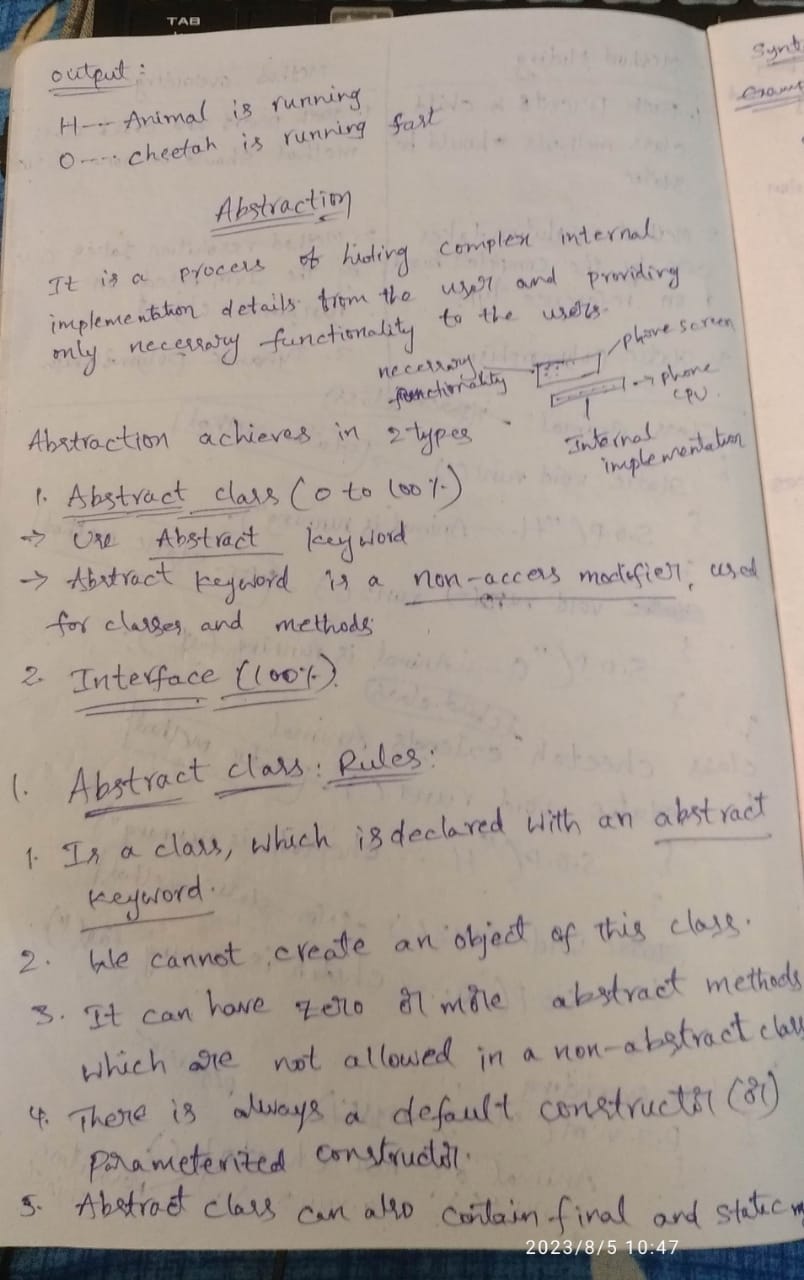 TAB
output:
H--- Animal is running
O---- cheetah is running fast
Abstraction
It is a process of hiding complex internal
implementation details from the user and providing
only necessary functionality to the users.
necessary functionality
phone screen
phone CPU.
Internal implementation
Abstraction achieves in 2 types
1. Abstract class (0 to 100%)
→ Use Abstract keyword
→ Abstract keyword is a non-access modifier, used
for classes and methods
2. Interface (100%).
1. Abstract class: Rules:
1. Is a class, which is declared with an abstract
keyword.
2. We cannot create an object of this class.
3. It can have zero or more abstract methods
which are not allowed in a non-abstract class
4. There is always a default constructor (or)
parameterized constructor.
5. Abstract class can also contain final and static
2023/8/5 10:47